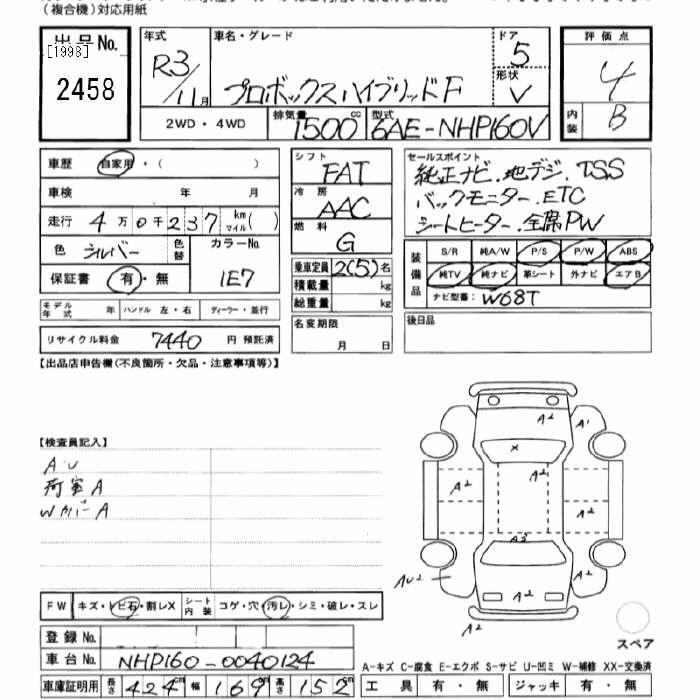 （複合機）対応用紙
出品No.
[1998]
2458
年式
R3/11月
車名・グレード
プロボックスハイブリッドF
ドア
5
形状
V
評価点
4
内装
B
2WD・4WD
排気量
1500 cc
型式
6AE-NHP160V
車歴 自家用・（ ）
車検 年 月
走行 4万0千237 km マイル( )
色 シルバー 色替 カラーNo.
1E7
保証書 有・無
モデル年式 年 ハンドル 左・右 ディーラー・並行
リサイクル料金 7440 円 預託済
シフト
FAT
冷房
AAC
燃料
G
乗車定員 2(5)名
積載量 kg
総重量 kg
名変期限
月 日
セールスポイント
純正ナビ.地デジ.TSS
バックモニター.ETC
シートヒーター.全席PW
装備品
S/R 純A/W P/S P/W ABS
純TV 純ナビ 革シート 外ナビ エアB
ナビ型番： W68T
後日品
【出品店申告欄(不良箇所・欠品・注意事項等)】
【検査員記入】
AU
荷室A
WガニA
A2
A1
X
A2
A2
A2
A2
A3
AU2
A2
A2
スペア
FW キズ・トビ石・割レX シート内装 コゲ・穴・汚レ・シミ・破レ・スレ
登録No.
車台No. NHP160-0040124
車庫証明用 長さ 424cm 幅 169cm 高さ 152cm
A-キズ C-腐食 E-エクボ S-サビ U-凹ミ W-補修 XX-交換済
工具 有・無 ジャッキ 有・無